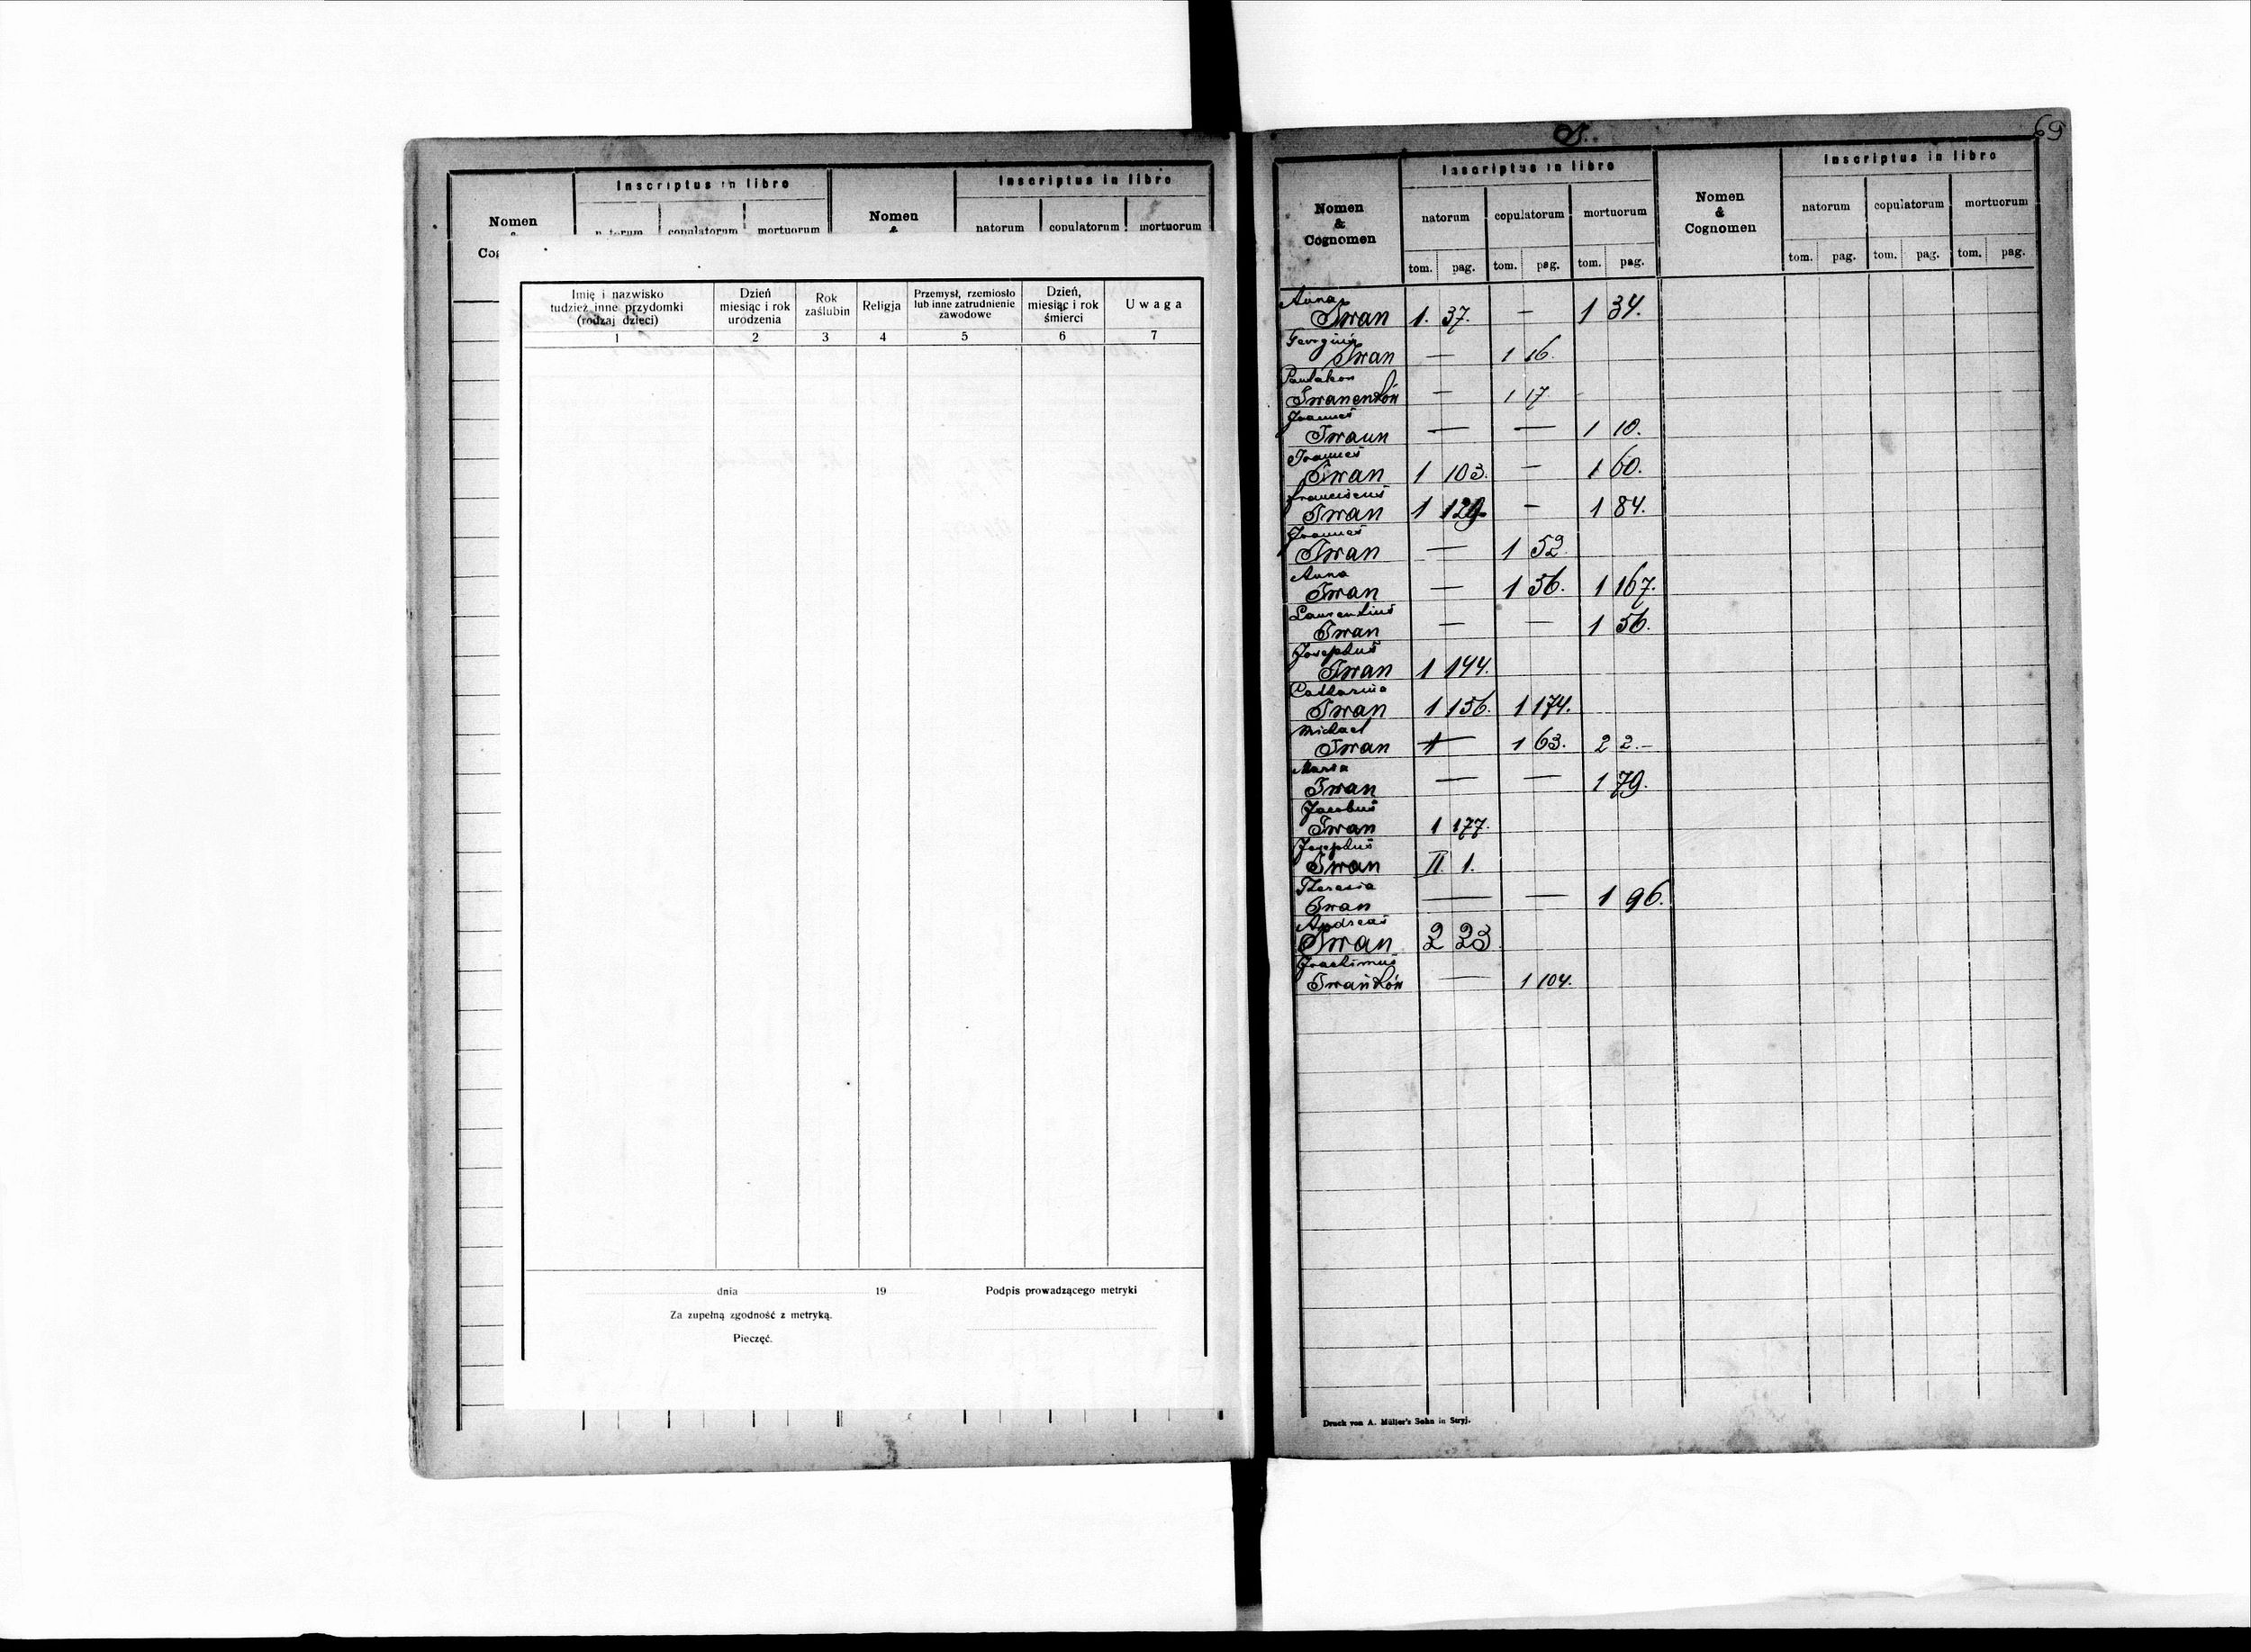 Inscriptus in libro
Inscriptus in libro
Nomen
Nomen
natorum copulatorum mortuorum
natorum copulatorum mortuorum
Imię i nazwisko tudzież inne przydomki (rodzaj dzieci)
Dzień miesiąc i rok urodzenia
Rok zaślubin
Religja
Przemysł, rzemiosło lub inne zatrudnienie zawodowe
Dzień, miesiąc i rok śmierci
Uwaga
1 2 3 4 5 6 7
dnia 19 Podpis prowadzącego metryki
Za zupełną zgodność z metryką.
Pieczęć.
J.
69
Nomen & Cognomen
Inscriptus in libro
natorum copulatorum mortuorum
tom. pag. tom. pag. tom. pag.
Nomen & Cognomen
Inscriptus in libro
natorum copulatorum mortuorum
tom. pag. tom. pag. tom. pag.
Anna
Iwan 1. 37. — 1 34.
Georgius
Iwan — 1 16.
Iwanenków — 1 17
Joannes
Iwaun — — 1 10.
Joannes
Iwan 1 103. — 1 60.
Franciscus
Iwan 1 129. — 1 84.
Joannes
Iwan — 1 52.
Anna
Iwan — 1 56. 1 167.
Laurentius
Iwan — — 1 56.
Josephus
Iwan 1 144.
Catharina
Iwan 1 156. 1 174.
Michael
Iwan — 1 63. 2 2.—
Maria
Iwan — — 1 79.
Jacobus
Iwan 1 177.
Josephus
Iwan II 1.
Theresia
Iwan — — 1 96.
Andreas
Iwan 2 23.
Joachimus
Iwańków — 1 104.
Druck von A. Müller's Sohn in Stryj.